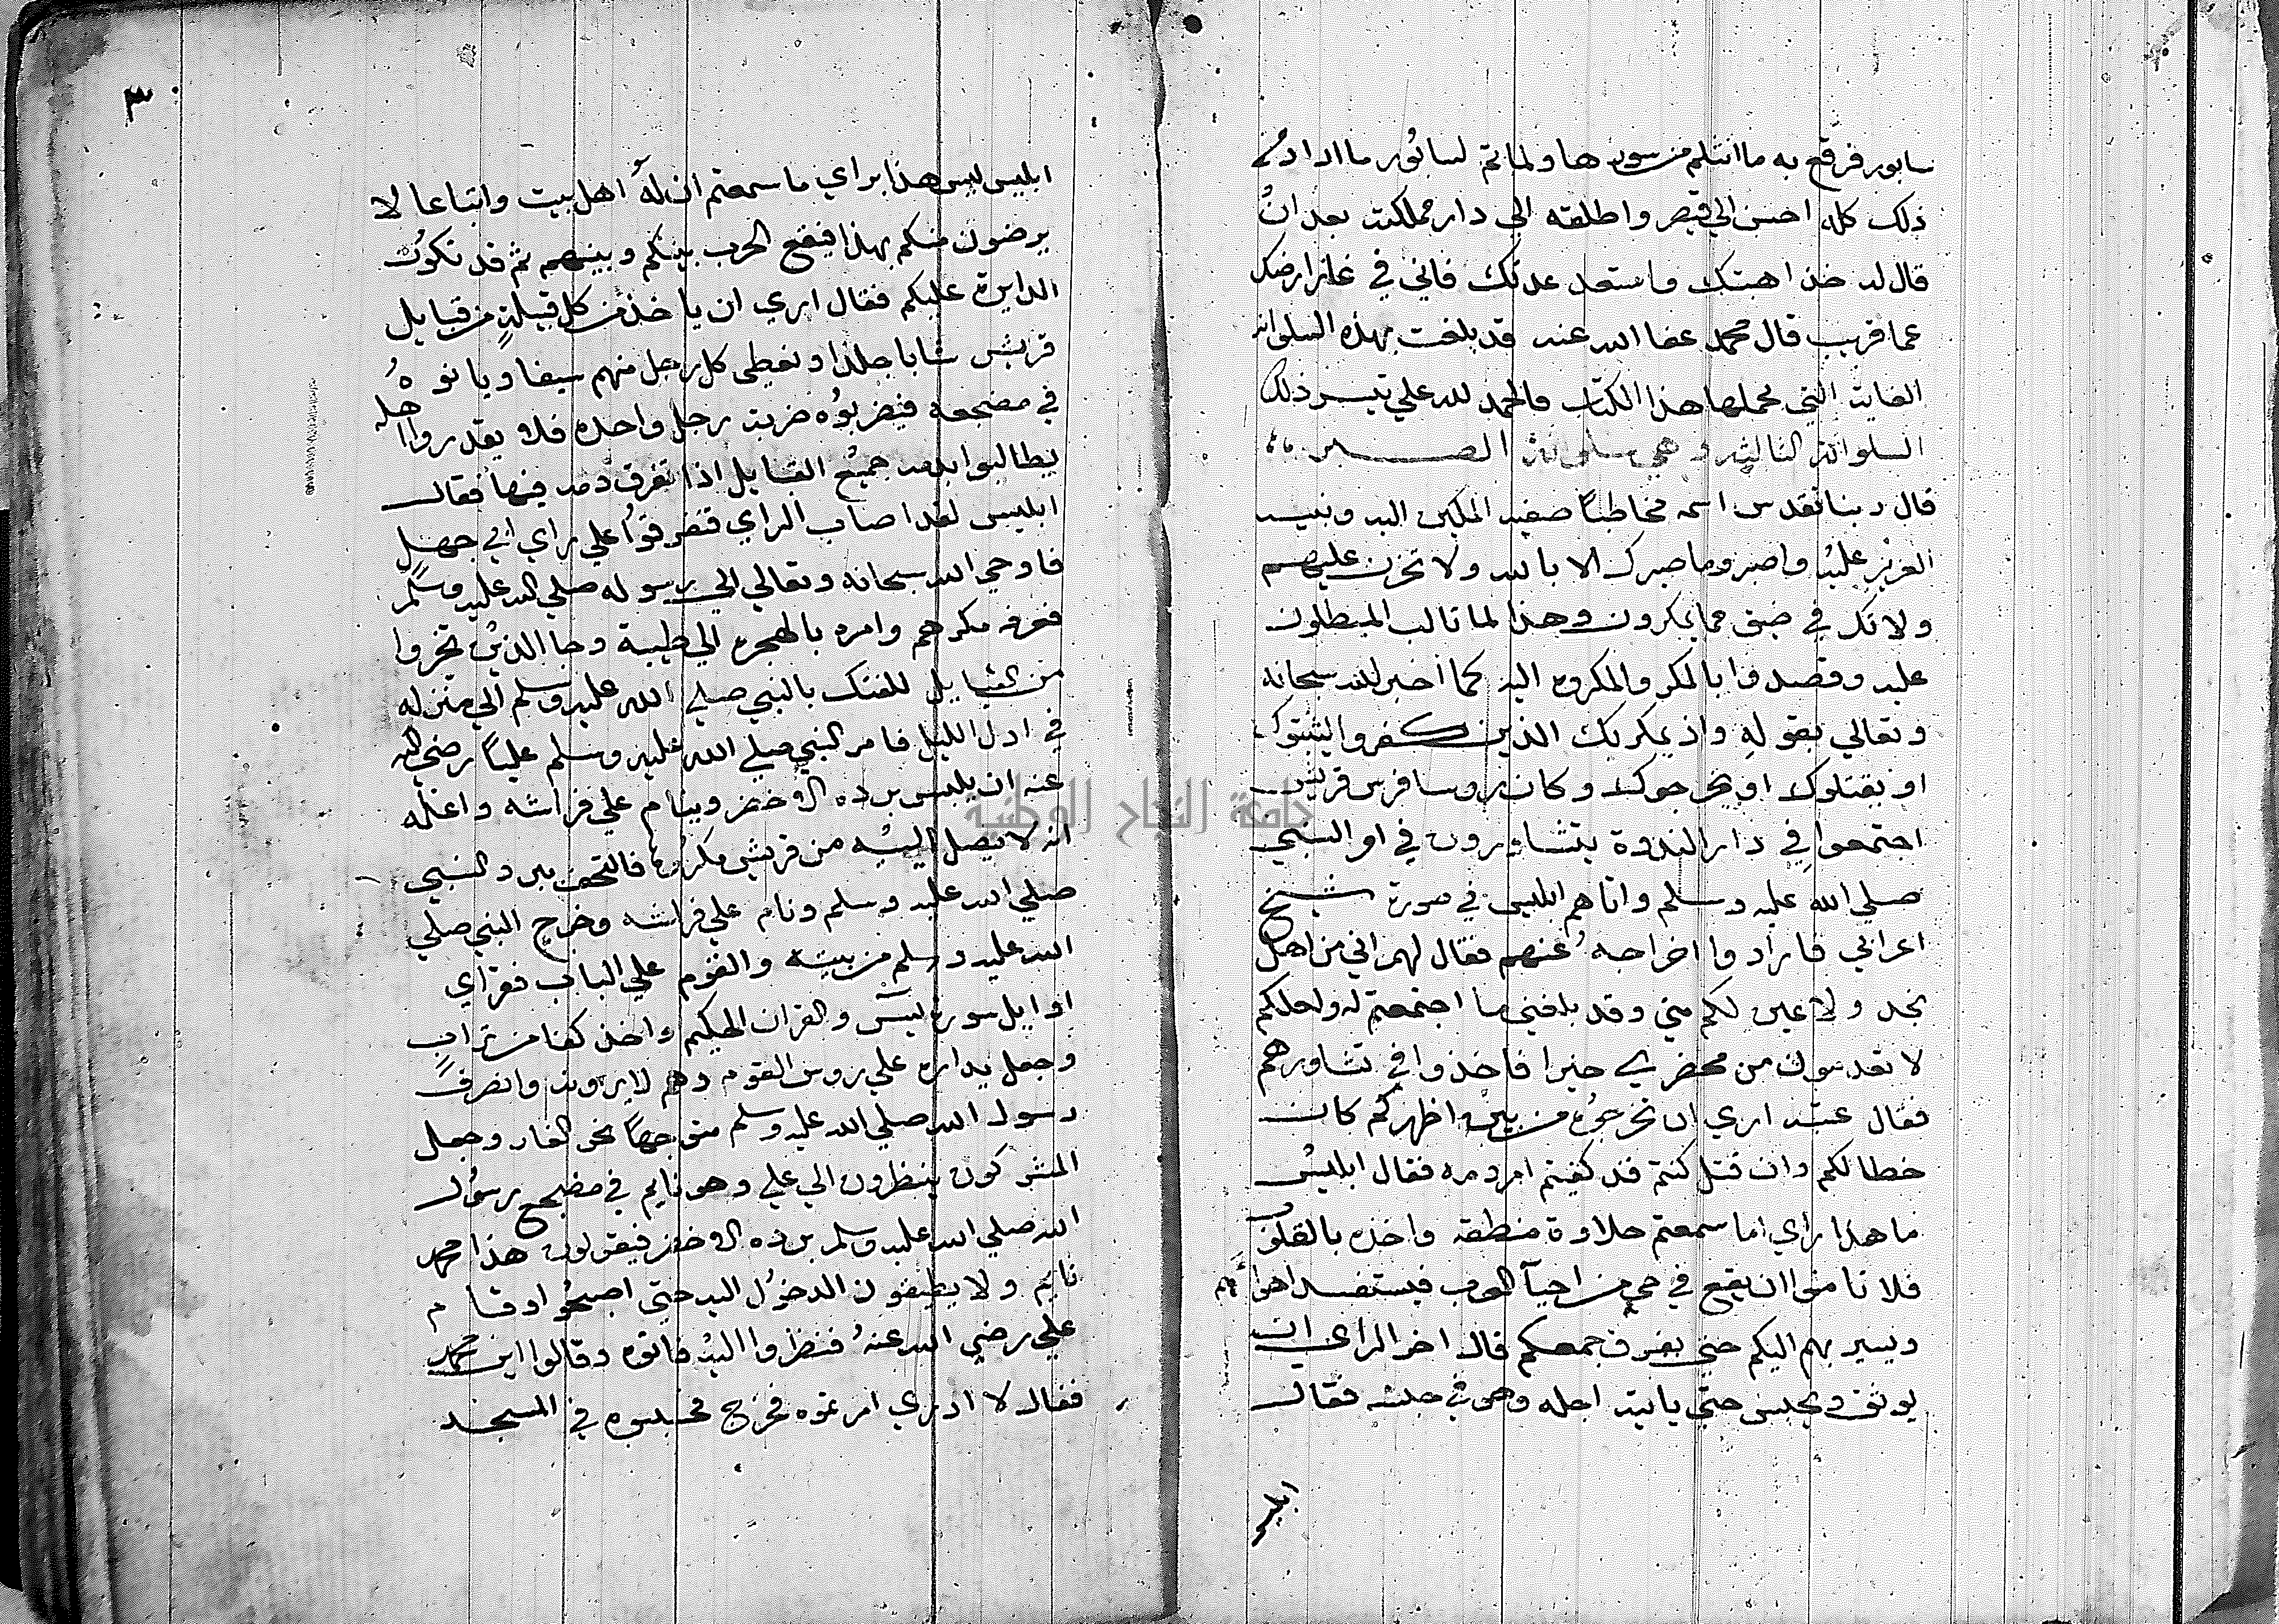 سابور فرقع به ما انثلم من سورها ولما تم لسابور ما اراد من
ذلك كله احسن الي قيصر واطلقه الي دار مملكته بعد ان
قال له خذ اهبتك واستعد عدتك فاني في غاز ارضك
عما قريب قال محمد عفا الله عنه قد بلغت بهذه السلوانه
الغايت التي محملها هذا الكتاب والحمد لله علي تيسر ذلك
السلوانة الثالثه وهي سلوانة الصبر
قال ربنا تقدس اسمه مخاطبًا صفيه المكين اليه ونبيه
العزيز عليه واصبر وما صبرك الا بالله ولا تحزن عليهم
ولا تك في ضيق مما يمكرون وهذا لما تالب المبطلون
عليه وقصدوا بالمكر والمكروه اليه كما اخبر الله سبحانه
وتعالي بقوله واذ يمكر بك الذين كفروا ليثبتوك
او يقتلوك او يخرجوك وكان روسا قريش
اجتمعوا في دار الندوة يتشاورون في امر النبي
صلي الله عليه وسلم واتاهم ابليس في صورة شيخ
اعرابي فارادوا اخراجه عنهم فقال لهم اني من اهل
نجد ولا عين لكم مني وقد بلغني ما اجتمعتم له ولعلكم
لا تعدمون من محضري خيرا فاخذوا في تشاورهم
فقال عتبه اري ان تخرجوه من بين اظهركم كان
خطا لكم وان قتل كنتم قد كفيتم امر دمه فقال ابليس
ما هذا راي اما سمعتم حلاوة منطقه واخذه بالقلوب
فلا تامنوا ان يقع في حي من احيآ العرب فيستفسد اهواهم
ويسير بهم اليكم حتي يفرق جمعكم قال اخر الراي ان
يوثق ويحبس حتي ياتيه اجله وهو في حبسه فقال
ابليس
٣
ابليس ليس هذا براي ما سمعتم ان له اهل بيت واتباعا لا
يرضون منكم بهذا فيقع الحرب بينكم وبينهم ثم قد تكون
الدايرة عليكم فقال اري ان ياخذ من كل قبيلةٍ من قبايل
قريش شابا جلدا ونعطي كل رجل منهم سيفا وياتوه
في مضجعه فيضربوه ضربة رجل واحده فلا يقدروا اهله
يطالبوا بدمه جميع القبايل اذا تفرق دمه فيها فقال
ابليس لقد اصاب الراي فتفرقوا علي راي ابي جهل
فاوحي الله سبحانه وتعالي الي رسوله صلي الله عليه وسلم
فعرفه مكرهم وامره بالهجره الي طيبة وجا الذين تخيروا
من القبايل للفتك بالنبي صلي الله عليه وسلم الي منزله
في اول الليل فامر النبي صلي الله عليه وسلم عليًا رضي الله
عنه ان يلبس برده الاخضر وينام علي فراشه واعلمه
انه لا يصل اليه من قريش مكروها فالتحف ببرد النبي
صلي الله عليه وسلم ونام علي فراشه وخرج النبي صلي
الله عليه وسلم من بيته والقوم علي الباب فقراي
اوايل سورة يس والقران الحكيم واخذ كفا من تراب
وجعل يداره علي روس القوم وهم لا يرونه وانصرف
رسول الله صلي الله عليه وسلم متوجهًا نحو الغار وجعل
المشركون ينظرون الي علي وهو نايم في مضجع رسول
الله صلي الله عليه وسلم برده الاخضر فيقولون هذا محمد
نايم ولا يطيقون الدخول اليه حتي اصبحوا وقام
علي رضي الله عنه فنظروا اليه فاتوه وقالوا اين محمد
فقال لا ادري امرتموه فخرج فحبسوه في المسجد